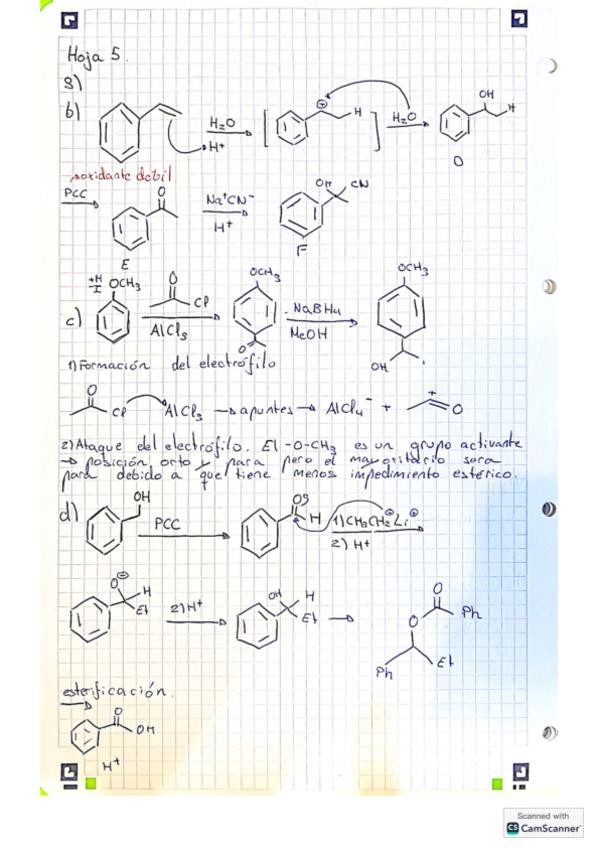 Hoja 5.
9)
b)
H₂O
H⁺
⊕
H
H₂O
OH
H
D
oxidante debil
PCC
O
E
Na⁺CN⁻
H⁺
OH CN
F
c)
+H
I
OCH₃
O
Cl
AlCl₃
OCH₃
O
NaBH₄
MeOH
OCH₃
OH
1) Formación del electrófilo
O
Cl AlCl₃ → apuntes → AlCl₄⁻ + + O
2) Ataque del electrófilo. El -O-CH₃ es un grupo activante
→ posición, orto y para pero el mayoritario sera
para debido a que tiene menos impedimiento estérico.
d)
OH
PCC
H
1) CH₃CH₂⊖Li⊕
2) H⁺
O⊖
H
Et
2) H⁺
OH H
Et
O
O
Ph
Ph
Et
esterificación.
O
OH
H⁺
Scanned with
CS CamScanner